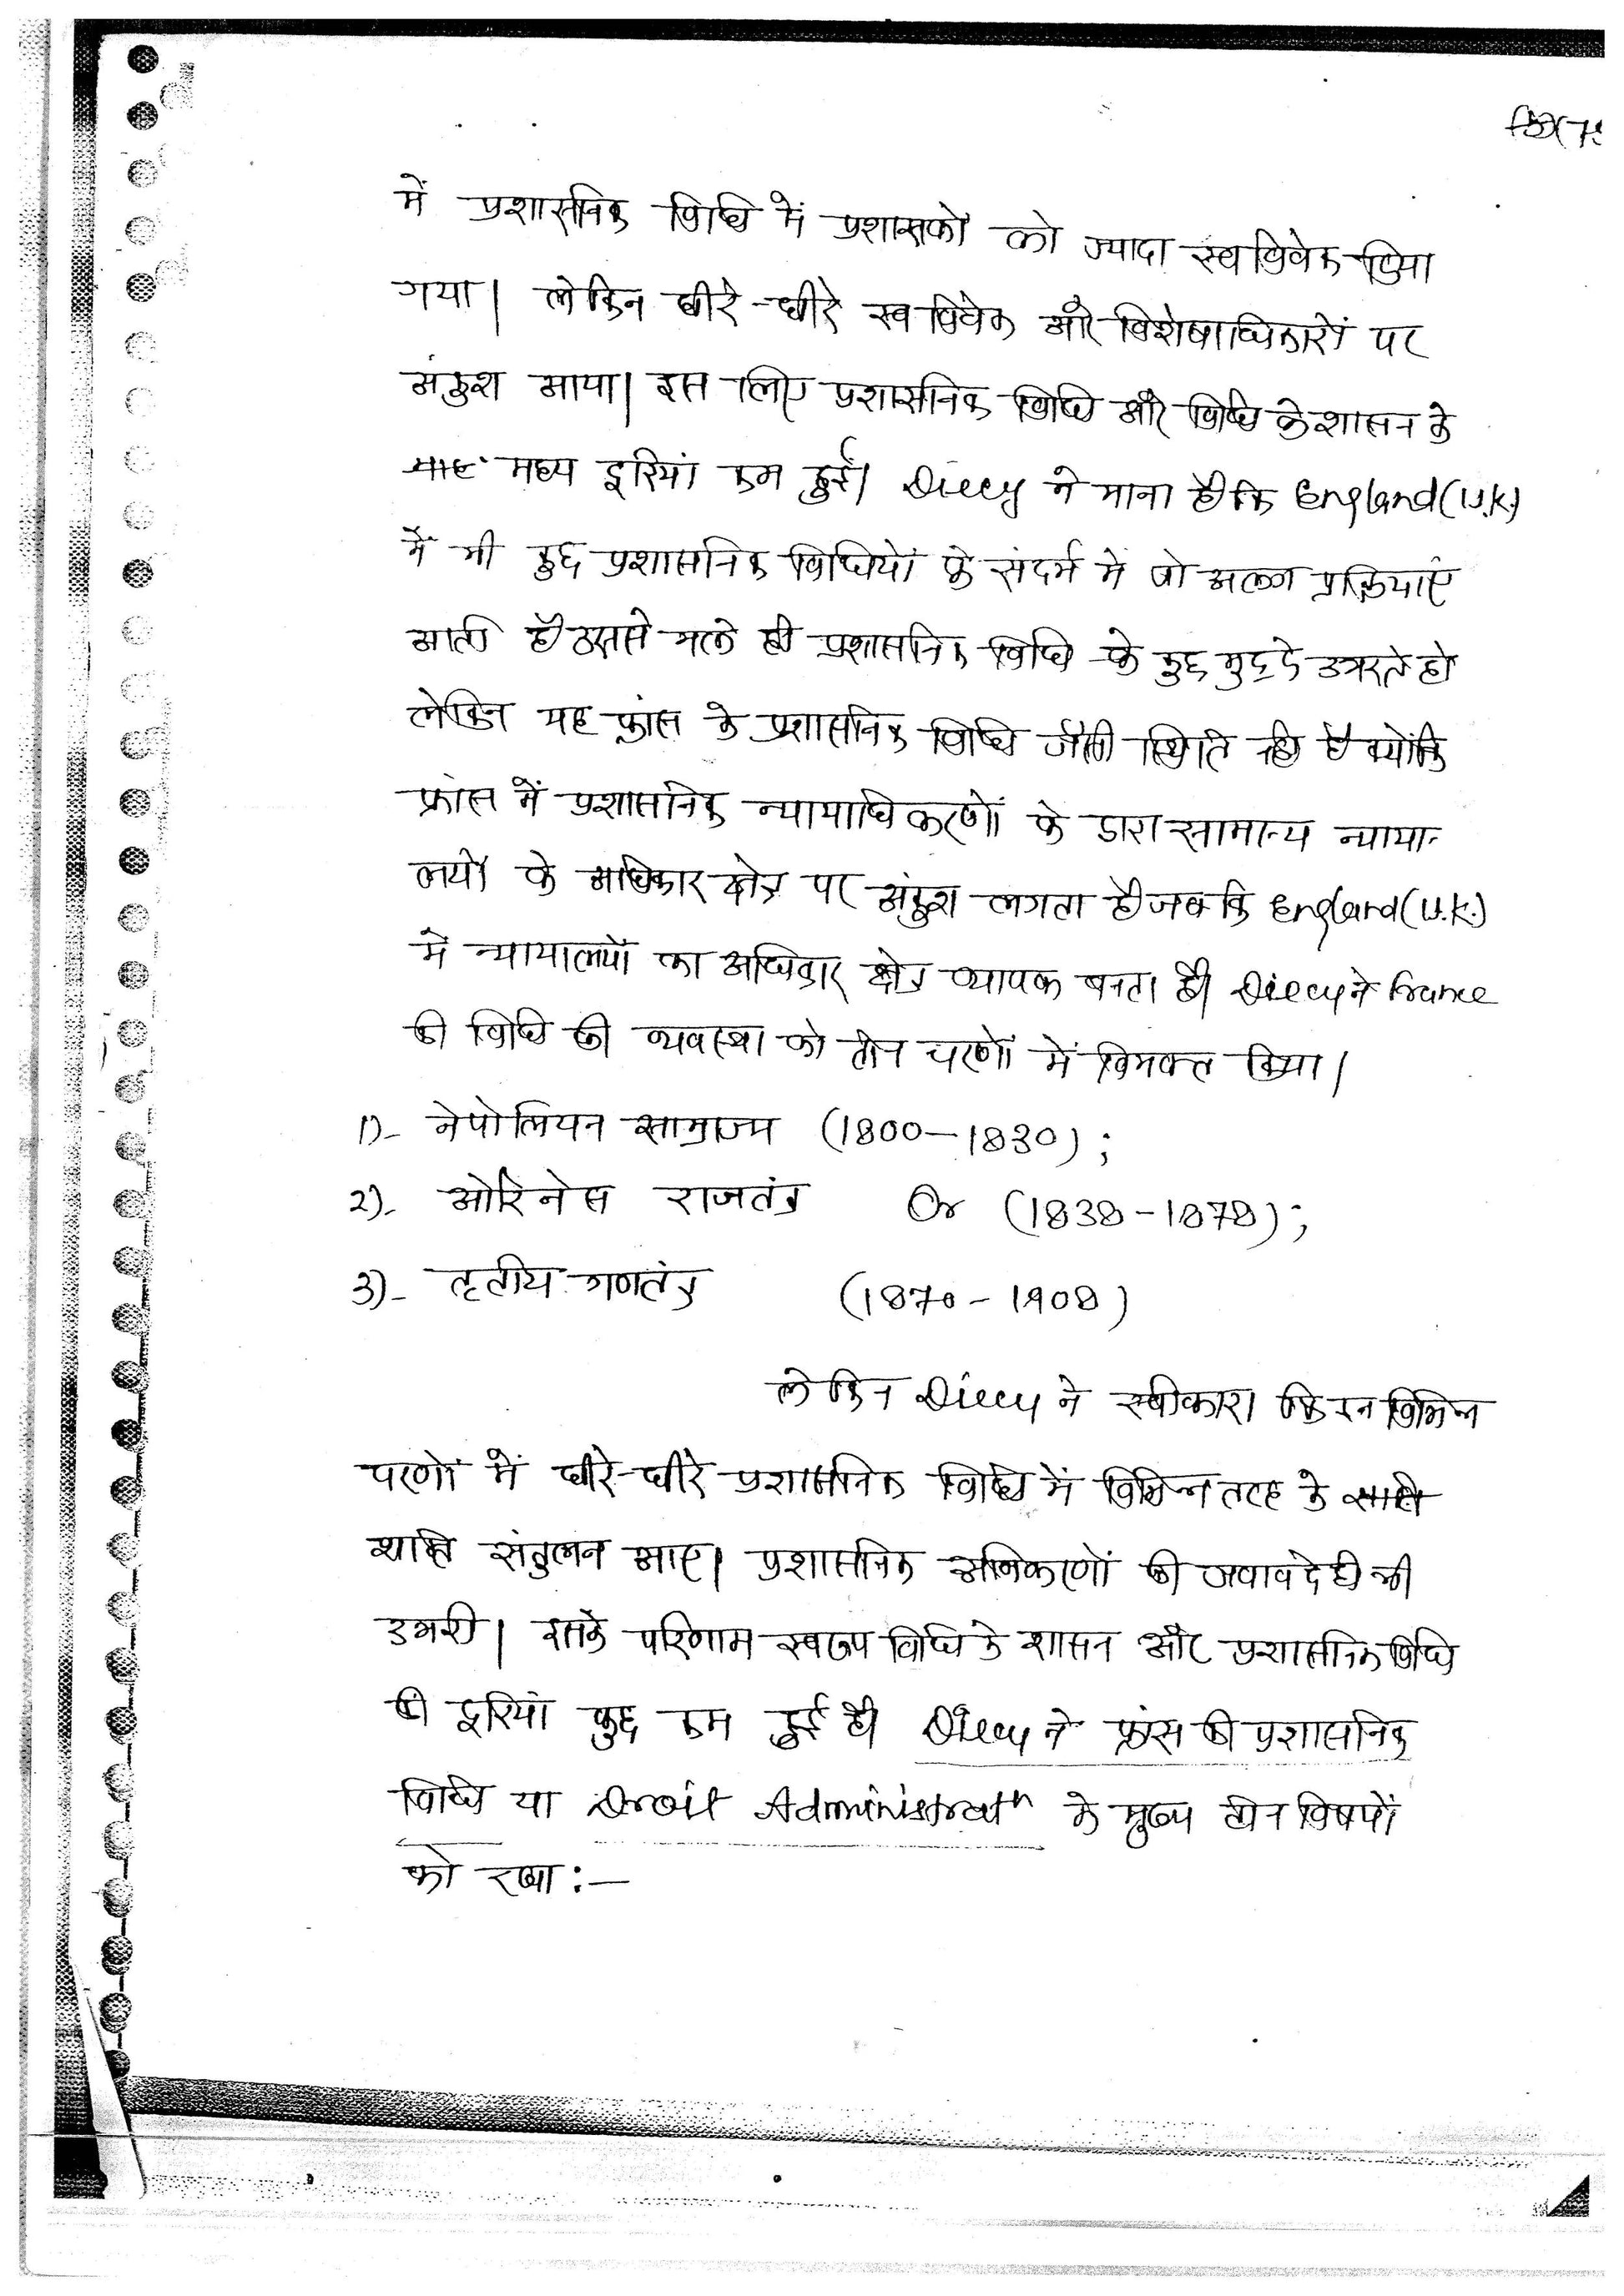 में प्रशासनिक विधि में प्रशासकों को ज्यादा स्वविवेक दिया
गया। लेकिन धीरे-धीरे स्वविवेक और विशेषाधिकारों पर
अंकुश आया। इस लिए प्रशासनिक विधि और विधि के शासन के
मध्य दूरियां कम हुई। Diecy ने माना है कि England (U.K.)
में भी कुछ प्रशासनिक विधियों के संदर्भ में जो अलग प्रक्रियाएं
आती है उससे भले ही प्रशासनिक विधि के कुछ मुद्दे उभरते हो
लेकिन यह फ्रांस के प्रशासनिक विधि जैसी स्थिति नही है क्योंकि
फ्रांस में प्रशासनिक न्यायाधिकरणों के द्वारा सामान्य न्याया-
लयों के अधिकार क्षेत्र पर अंकुश लगता है जबकि England (U.K.)
में न्यायालयों का अधिकार क्षेत्र व्यापक बनता है। Diecy ने France
की विधि की व्यवस्था को तीन चरणों में विभक्त किया।
1)- नेपोलियन साम्राज्य (1800-1830);
2)- ओरिनेस राजतंत्र Or (1838-1878);
3)- तृतीय गणतंत्र (1870-1908)
लेकिन Diecy ने स्वीकारा कि इन विभिन्न
चरणों में धीरे-धीरे प्रशासनिक विधि में विभिन्न तरह के
शक्ति संतुलन आए। प्रशासनिक अभिकरणों की जवाबदेही भी
उभरी। इसके परिणाम स्वरूप विधि के शासन और प्रशासनिक विधि
की दूरियां कुछ कम हुई है। Diecy ने फ्रांस की प्रशासनिक
विधि या Droit Administratn के मुख्य तीन विषयों
को रखा :-